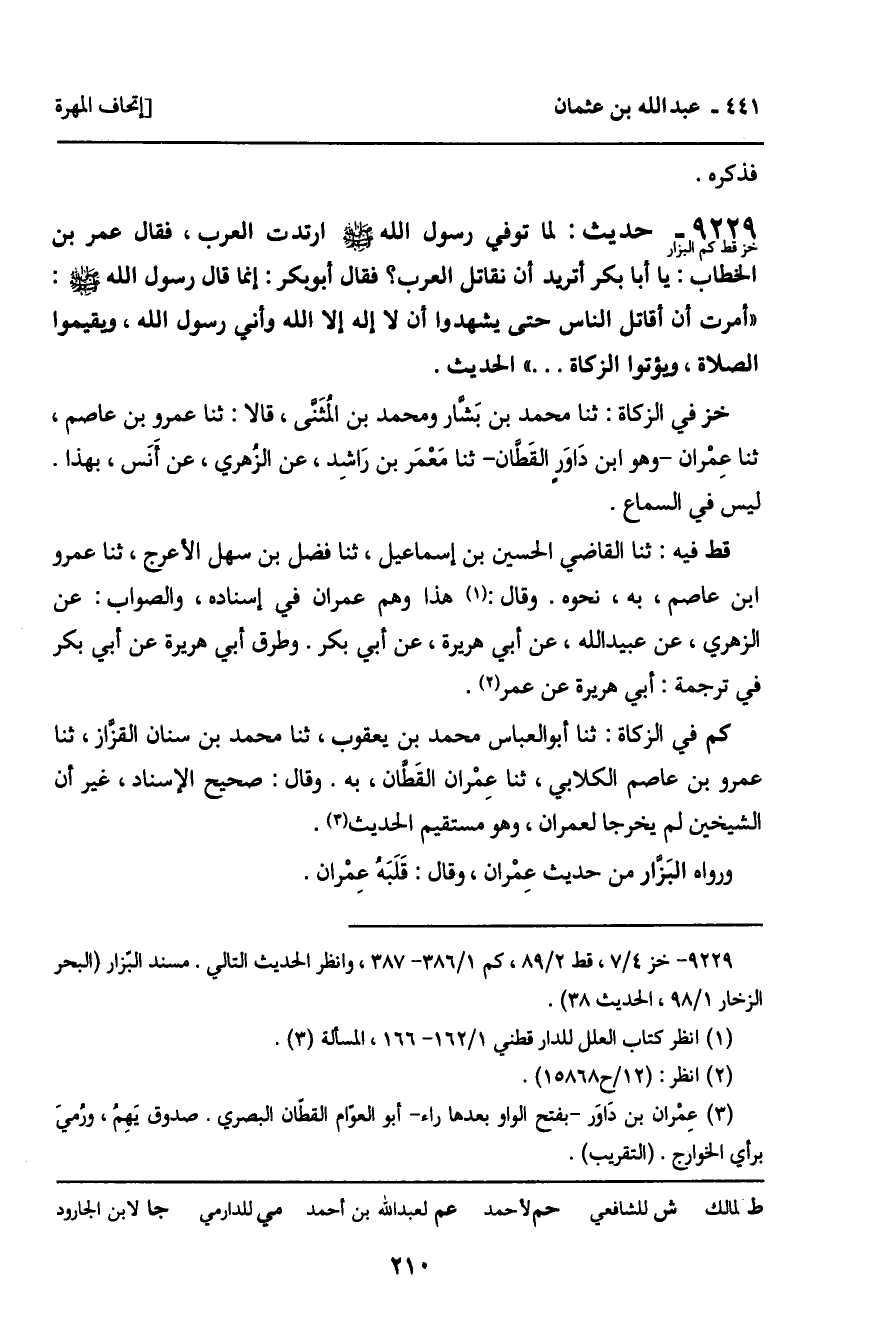 ٤٤١ - عبدالله بن عثمان [إتحاف المهرة
فذكره .
٩٢٢٩- حديث : لما توفي رسول الله ﷺ ارتدت العرب ، فقال عمر بن
خز قط كم البزار
الخطاب : يا أبا بكر أتريد أن نقاتل العرب؟ فقال أبوبكر : إنما قال رسول الله ﷺ :
«أمرت أن أقاتل الناس حتى يشهدوا أن لا إله إلا الله وأني رسول الله ، ويقيموا
الصلاة ، ويؤتوا الزكاة . . .» الحديث .
خز في الزكاة : ثنا محمد بن بَشَّار ومحمد بن المُثَنَّى ، قالا : ثنا عمرو بن عاصم ،
ثنا عِمْران -وهو ابن دَاوَرٍ القَطَّان- ثنا مَعْمَر بن رَاشِد ، عن الزُهري ، عن أَنَس ، بهذا .
ليس في السماع .
قط فيه : ثنا القاضي الحسين بن إسماعيل ، ثنا فضل بن سهل الأعرج ، ثنا عمرو
ابن عاصم ، به ، نحوه . وقال :(١) هذا وهم عمران في إسناده ، والصواب : عن
الزهري ، عن عبيدالله ، عن أبي هريرة ، عن أبي بكر . وطرق أبي هريرة عن أبي بكر
في ترجمة : أبي هريرة عن عمر(٢) .
كم في الزكاة : ثنا أبوالعباس محمد بن يعقوب ، ثنا محمد بن سنان القزَّاز ، ثنا
عمرو بن عاصم الكلابي ، ثنا عِمْران القَطَّان ، به . وقال : صحيح الإسناد ، غير أن
الشيخين لم يخرجا لعمران ، وهو مستقيم الحديث(٣) .
ورواه البَزَّار من حديث عِمْران ، وقال : قَلَبَهُ عِمْران .
٩٢٢٩- خز ٧/٤ ، قط ٨٩/٢ ، كم ٣٨٦/١- ٣٨٧ ، وانظر الحديث التالي . مسند البّزار (البحر
الزخار ٩٨/١ ، الحديث ٣٨) .
(١) انظر كتاب العلل للدار قطني ١٦٢/١- ١٦٦ ، المسألة (٣) .
(٢) انظر : (١٢/ح١٥٨٦٨) .
(٣) عِمْران بن دَاوَر -بفتح الواو بعدها راء- أبو العوّام القطّان البصري . صدوق يَهِمُ ، ورُميَ
برأي الخوارج . (التقريب) .
ط لمالك ش للشافعي حم لأحمد عم لعبدالله بن أحمد مي للدارمي جا لابن الجارود
٢١٠